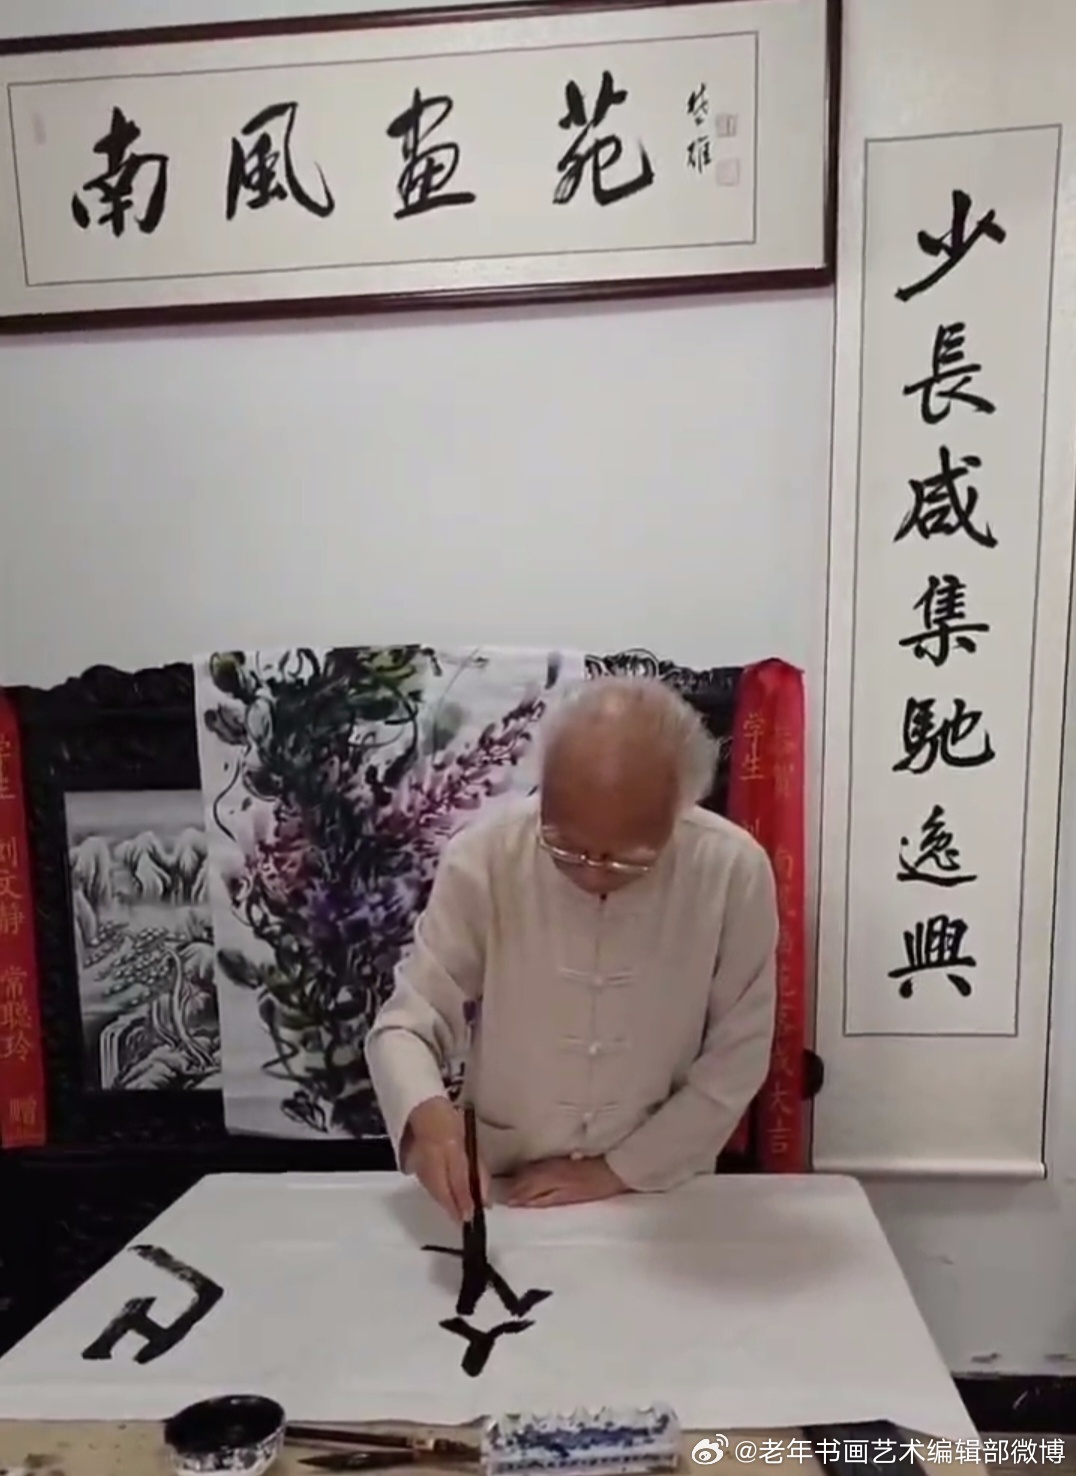 南風畫苑
楚雄
少長咸集馳逸興
学生 刘文静 常聪玲 赠
学生 刘
@老年书画艺术编辑部微博